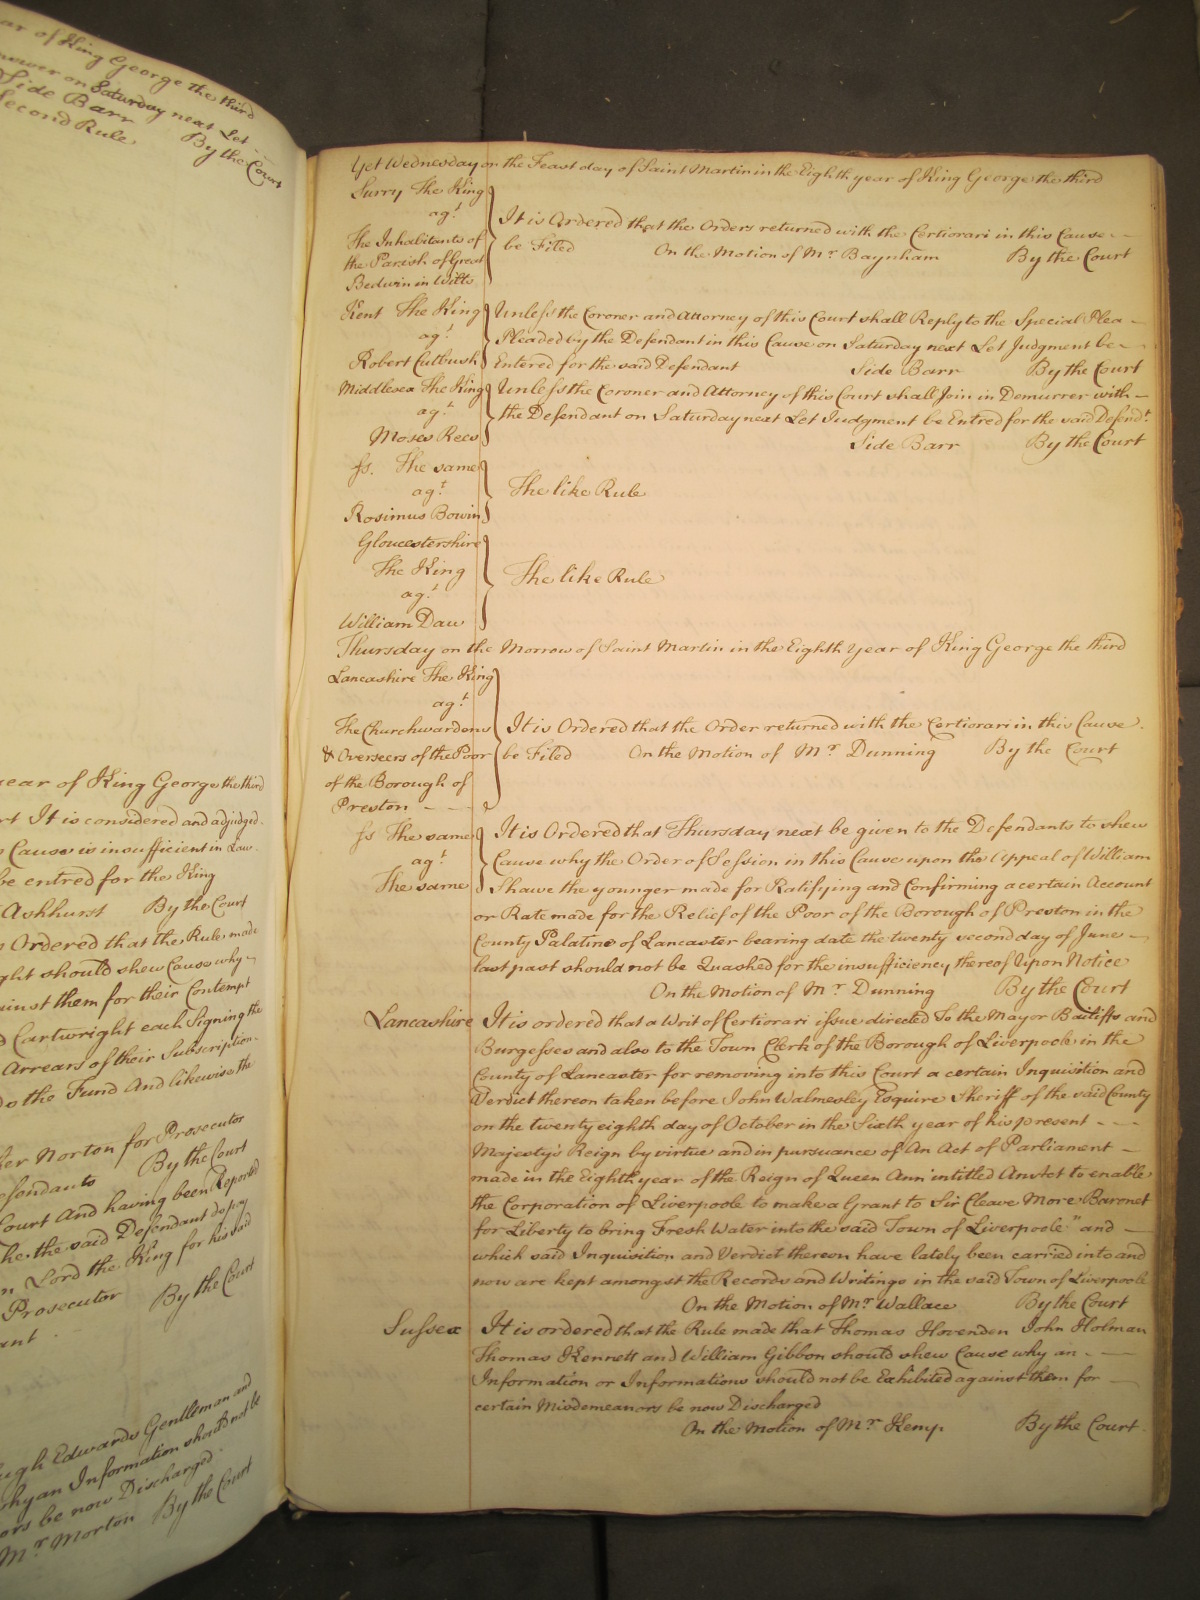 ar of King George the third
on Saturday next Let
Side Barr By the Court
Second Rule
year of King George the third
It is considered and adjudged
Cause is insufficient in Law
be entred for the King
Ashhurst By the Court
Ordered that the Rule made
ght should shew Cause why
ainst them for their Contempt
Cartwright each Signing the
Arrears of their Subscription
to the Fund And likewise the
Norton for Prosecutor
efendants By the Court
Court And having been Reported
the said Defendant do pay
Lord the King for his said
Prosecutor By the Court
ant
ugh Edwards Gentleman and
why an Information should not be
ors be now Discharged
Mr Morton By the Court
Yet Wednesday on the Feast day of Saint Martin in the Eighth year of King George the third
Surry The King
agt
The Inhabitants of
the Parish of Great
Bedwin in Wilts
It is Ordered that the Orders returned with the Certiorari in this Cause
be Filed On the Motion of Mr Baynham By the Court
Kent The King
agt
Robert Cutbush
Unless the Coroner and Attorney of this Court shall Reply to the Special Plea
Pleaded by the Defendant in this Cause on Saturday next Let Judgment be
Entered for the said Defendant Side Barr By the Court
Middlesex The King
agt
Moses Rees
Unless the Coroner and Attorney of this Court shall Join in Demurrer with
the Defendant on Saturday next Let Judgment be Entred for the said Defendt
Side Barr By the Court
ss. The same
agt
Rosimus Bowin
The like Rule
Gloucestershire
The King
agt
William Daw
The like Rule
Thursday on the Morrow of Saint Martin in the Eighth Year of King George the third
Lancashire The King
agt
The Churchwardens
& Overseers of the Poor
of the Borough of
Preston - - -
It is Ordered that the Order returned with the Certiorari in this Cause
be Filed On the Motion of Mr Dunning By the Court
ss The same
agt
The same
It is Ordered that Thursday next be given to the Defendants to shew
Cause why the Order of Session in this Cause upon the Appeal of William
Shawe the younger made for Ratifying and Confirming a certain Account
or Rate made for the Relief of the Poor of the Borough of Preston in the
County Palatine of Lancaster bearing date the twenty second day of June
last past should not be Quashed for the insufficiency thereof Upon Notice
On the Motion of Mr Dunning By the Court
Lancashire It is ordered that a Writ of Certiorari issue directed To the Mayor Bailiffs and
Burgesses and also to the Town Clerk of the Borough of Liverpoole in the
County of Lancaster for removing into this Court a certain Inquisition and
Verdict thereon taken before John Walmesley Esquire Sheriff of the said County
on the twenty eighth day of October in the Sixth year of his present - - -
Majesty's Reign by virtue and in pursuance of An Act of Parliament
made in the Eighth year of the Reign of Queen Ann intitled An Act to enable
the Corporation of Liverpoole to make a Grant to Sir Cleave More Baronet
for Liberty to bring Fresh Water into the said Town of Liverpoole" and
which said Inquisition and Verdict thereon have lately been carried into and
now are kept amongst the Records and Writings in the said Town of Liverpoole
On the Motion of Mr Wallace By the Court
Sussex It is ordered that the Rule made that Thomas Hovenden John Holman
Thomas Kennett and William Gibbon should shew Cause why an - -
Information or Informations should not be Exhibited against them for
certain Misdemeanors be now Discharged
On the Motion of Mr Kemp By the Court